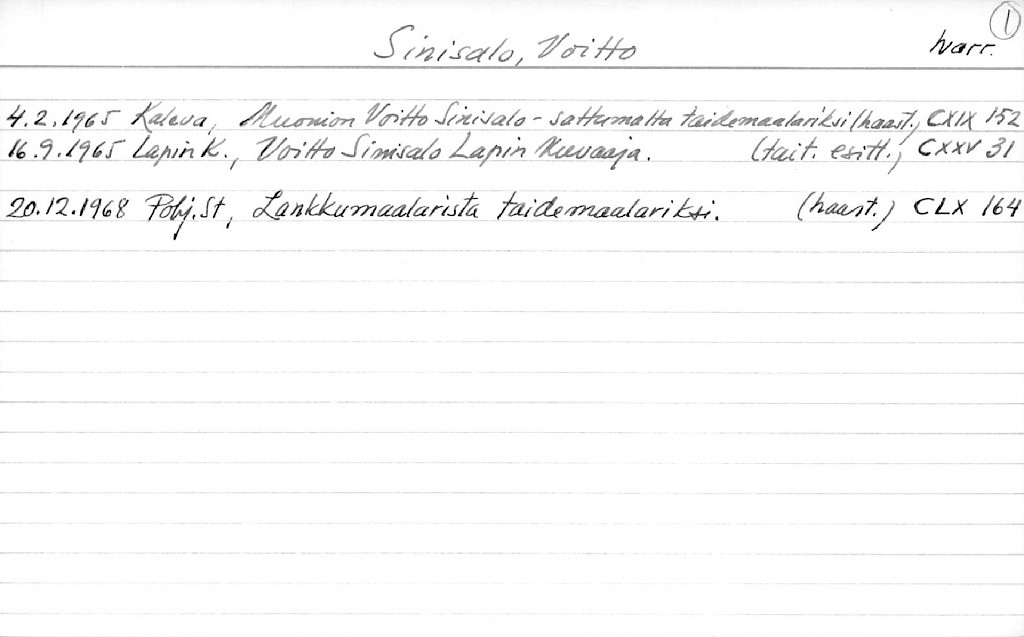 1
Sinisalo, Voitto harr.
4.2.1965 Kaleva, Muonion Voitto Sinisalo - sattumalta taidemaalariksi (haast.) CXIX 152
16.9.1965 Lapin K., Voitto Sinisalo Lapin kuvaaja. (tait. esitt.) CXXV 31
20.12.1968 Pohj. St, Lankkumaalarista taidemaalariksi. (haast.) CLX 164